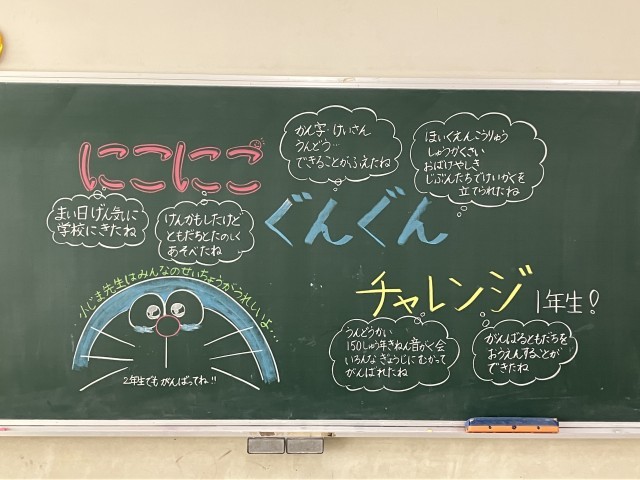 にこにこ
まい日げん気に
学校にきたね
けんかもしたけど
ともだちとたのしく
あそべたね
かん字・けいさん
うんどう…
できることがふえたね
ぐんぐん
ほいくえんこうりゅう
しゅうかくさい
おばけやしき
じぶんたちでけいかくを
立てられたね
チャレンジ 1年生!
うんどうかい
150しゅう年きねん音がく会
いろんなぎょうじにむかって
がんばれたね
がんばるともだちを
おうえんすることが
できたね
小じま先生はみんなのせいちょうがうれしいよ…
2年生でもがんばってね!!